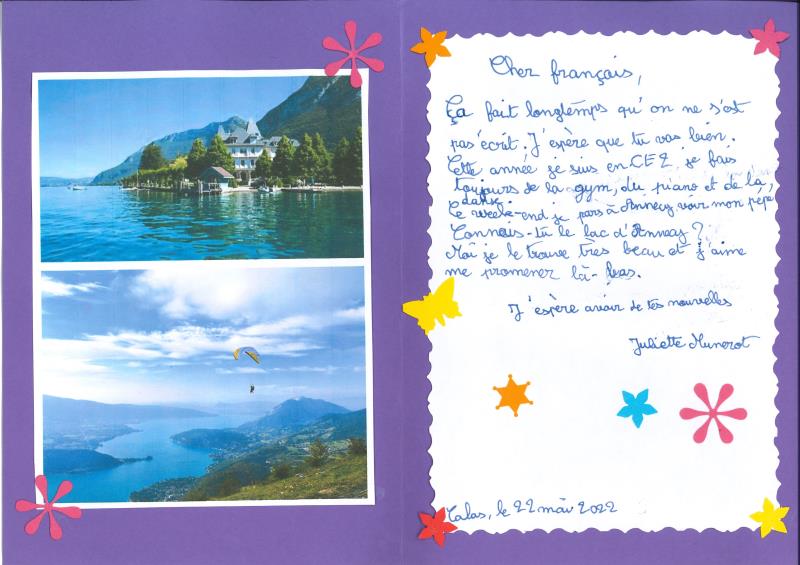 Cher français,
Ça fait longtemps qu'on ne s'est
pas écrit. J'espère que tu vas bien.
Cette année je suis en CE2, je fais
toujours de la gym, du piano et de la
danse.
Ce week-end je pars à Annecy voir mon pépé,
Connais-tu le lac d'Annecy ?
Moi je le trouve très beau et j'aime
me promener là-bas.
J'espère avoir de tes nouvelles
Juliette Munerot
Talas, le 22 mai 2022